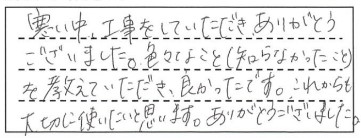 寒い中、工事をしていただき、ありがとう
ございました。色々なこと(知らなかったこと)
を教えていただき、良かったです。これからも
大切に使いたいと思います。ありがとうございました。